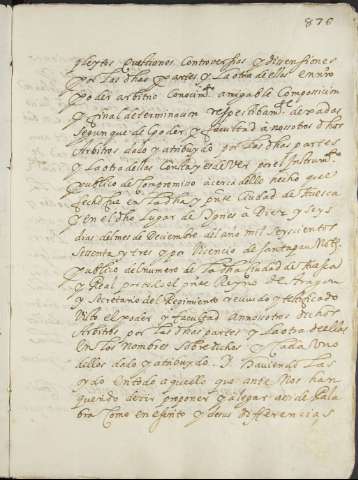 876
pleytos questiones Controversias y dissensiones
por las dhas partes y la otra dellas en nro
poder arbitrio Conocimto amigable Composicion
y final determinacion respectibamte dexadas
segun que de Poder y facultad a nosotros dhos
Arbitros dado y atribuydo por las dhas partes
y la otra dellas Consta y es de Ver por el Instrumto
publico de Compromisso acerca dello hecho que
fecho fue en la dha y pnte Ciudad de Huesca
y en el dho Lugar de a Diez y seys
dias del mes de Deciembre del año mil seyscientos
setenta y tres y por Vicencio de Santapau Notº
publico del numero de la dha Ciudad de Huesca
y Real por todo el pnte Reyno de Aragon
y Secretario del Regimiento recivido y testificado
Visto el poder y facultad a nosotros dichos
Arbitros por las dhas partes y la otra de ellas
en los Nombres sobredichos y Cada Uno
dellos dado y atribuydo. Y haviendo las
oydo en todo aquello que ante Nos han
querido dezir proponer y alegar assi de Pala
bra Como en escrito y de sus differencias